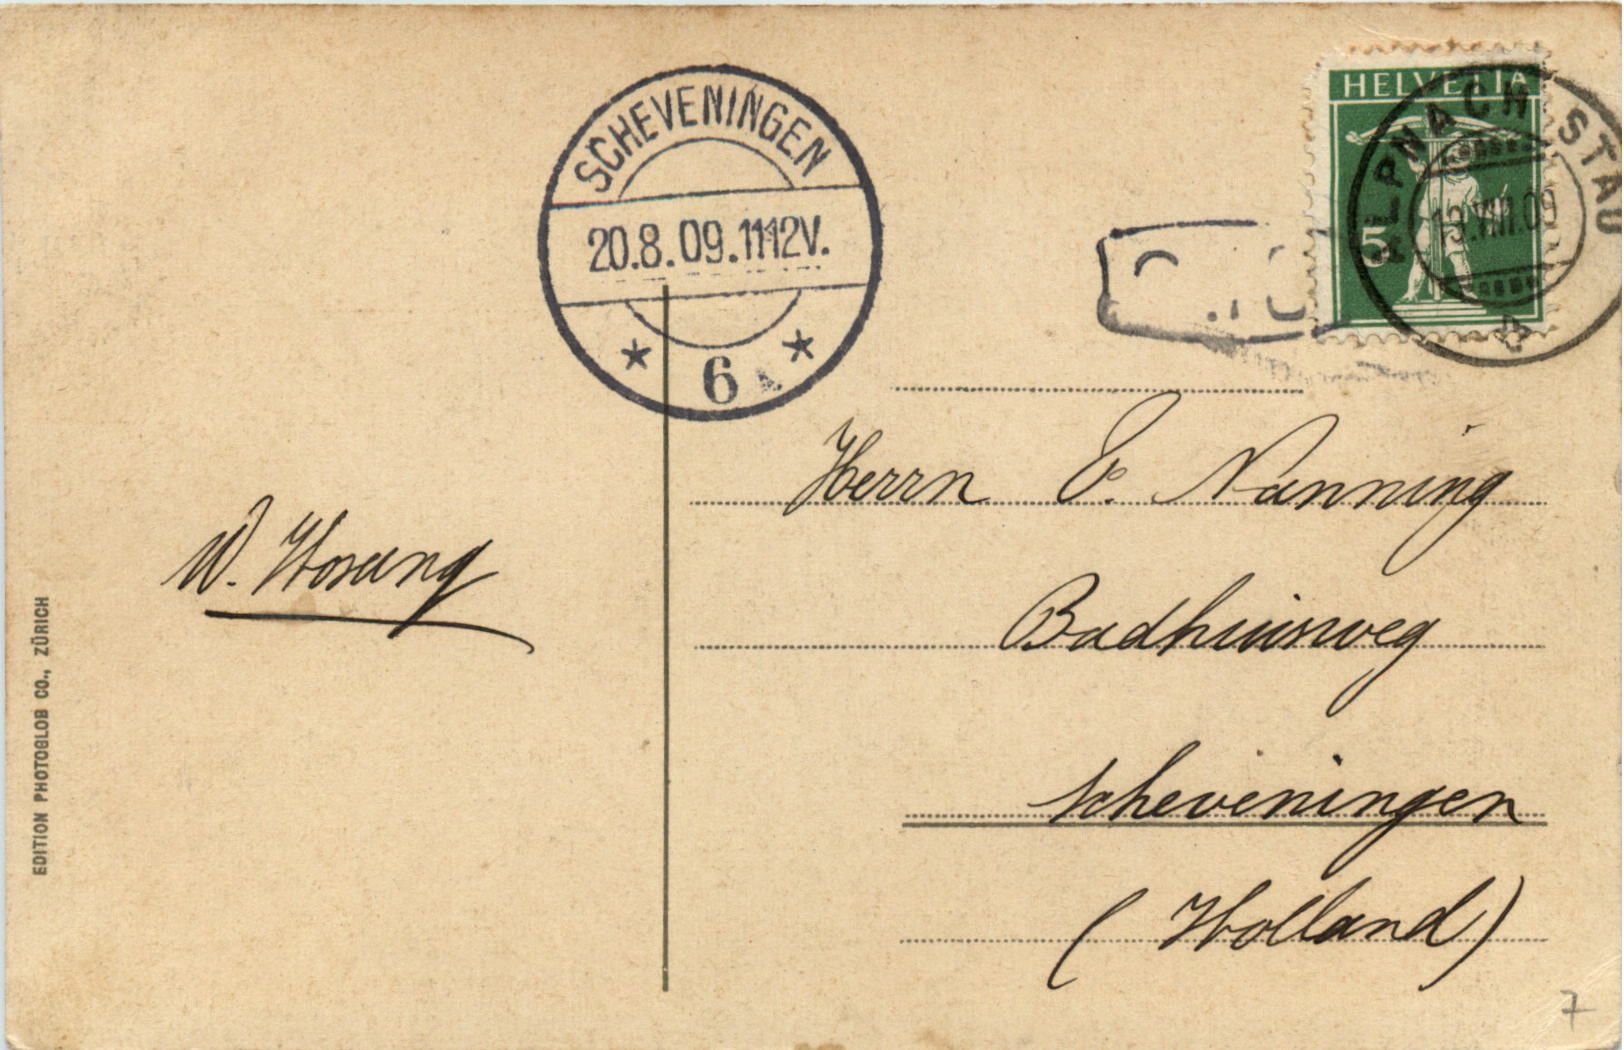 SCHEVENINGEN
20.8.09.1112V.
6
HELVETIA
5
ALPNACH STAD
19.VIII.09
Herrn E. Nanning
Badhuisweg
Scheveningen
(Holland)
W. Hosang
EDITION PHOTOGLOB CO., ZÜRICH
7